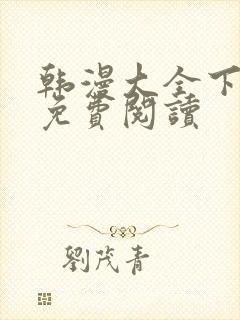 韩漫大全下
免費閱讀
劉茂青